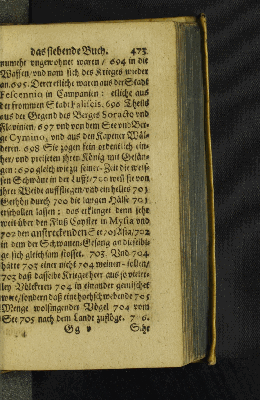 das siebende Buch. 473
nunmehr ungewohnet waren / 694 in die
Waffen / und nam sich des Krieges wieder
an. 695. Derer etliche waren aus der Stadt
Fescennia in Campanien: etliche aus
der frommen Stadt Faliscis. 696 Theils
aus der Gegend des Berges Soracho und
Flavinien, 697 und von dem See und Ber-
ge Cymino, und aus den Kapener Wäl-
dern. 698 Sie zogen fein ordentlich ein-
her / und preiseten ihren König mit Gesän-
gen: 699 gleich wie zu seiner Zeit die weis-
sen Schwäne in der Lufft / 700 wenn sie von
ihrer Weide aufffliegen / und ein helles 701
Gethön durch 700 die langen Hälse 701
erschallen lassen: das erklinget denn sehr
weit über den Fluß Cayster in Mysia und
702 den anstreckenden See 701 Asia / 702
in dem der Schwanen-Gesang an die
ge sich gleichsam stosset. 703. Und 704
hätte 703 einer nicht 704 meinen sollen /
703 daß dasselbe Krieges heer aus so vieler-
ley Völckern 704 in einander gemischet
were / sondern daß eine hochschwebende 705
Menge wolsingender Vögel 704 vom
See 705 nach dem Landt zuflöge. 706.
Gg v Sehr